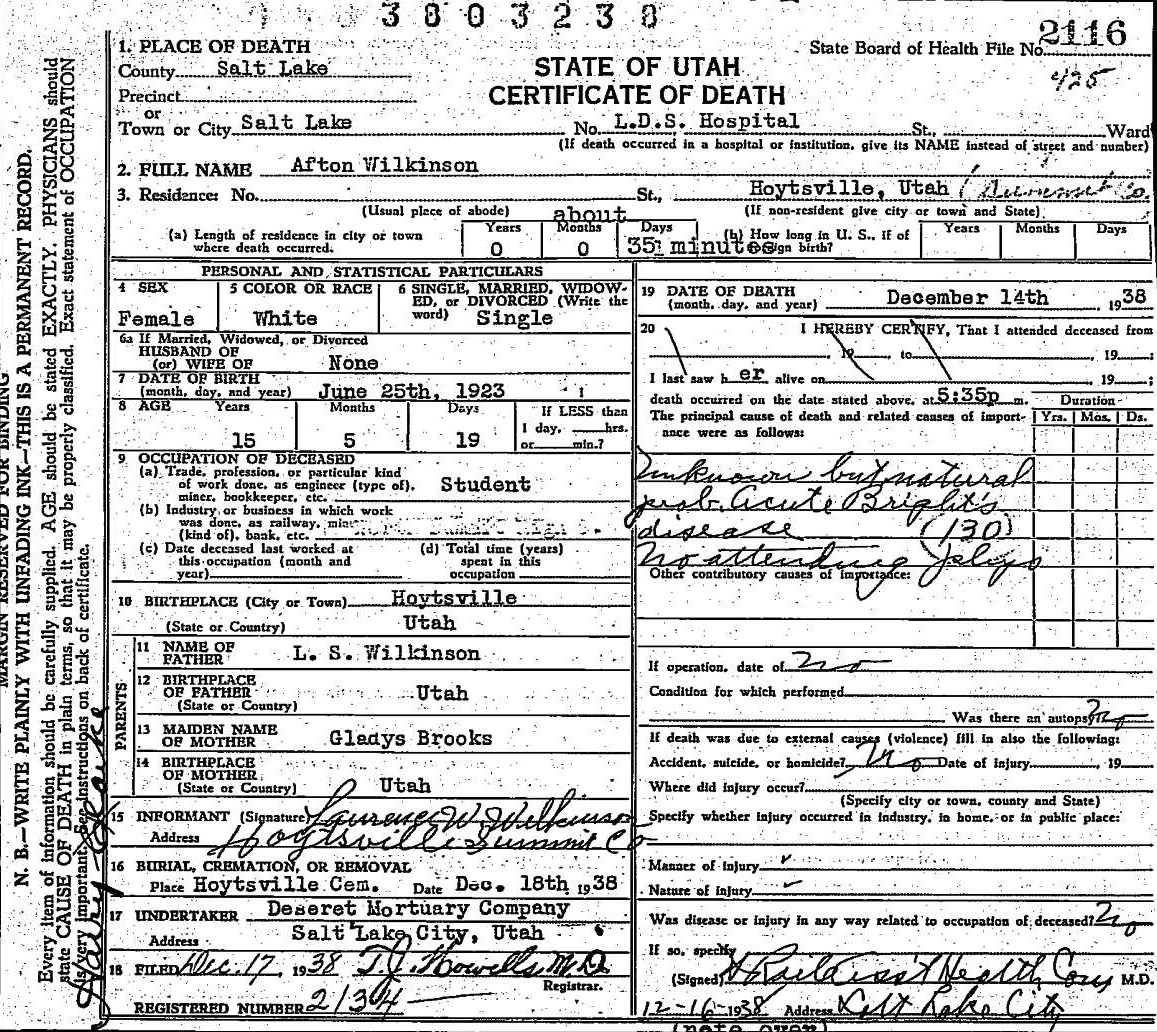 3803230
2116
State Board of Health File No.
425
1. PLACE OF DEATH
County Salt Lake
STATE OF UTAH
CERTIFICATE OF DEATH
Precinct
or
Town or City Salt Lake No. L.D.S. Hospital St., Ward
(If death occurred in a hospital or institution, give its NAME instead of street and number)
2. FULL NAME Afton Wilkinson
3. Residence: No. St., Hoytsville, Utah (Summit Co.
(Usual place of abode) about (If non-resident give city or town and State)
(a) Length of residence in city or town where death occurred. Years 0 Months 0 Days 35 minutes
(b) How long in U. S., if of birth? Years Months Days
PERSONAL AND STATISTICAL PARTICULARS
4 SEX Female
5 COLOR OR RACE White
6 SINGLE, MARRIED, WIDOWED, or DIVORCED (Write the word) Single
6a If Married, Widowed, or Divorced
HUSBAND OF
(or) WIFE OF None
7 DATE OF BIRTH
(month, day, and year) June 25th, 1923
8 AGE Years 15 Months 5 Days 19
If LESS than
1 day, hrs.
or min.?
9 OCCUPATION OF DECEASED
(a) Trade, profession, or particular kind
of work done, as engineer (type of),
miner, bookkeeper, etc. Student
(b) Industry or business in which work
was done, as railway,
(kind of), bank, etc.
(c) Date deceased last worked at
this occupation (month and
year)
(d) Total time (years)
spent in this
occupation
10 BIRTHPLACE (City or Town) Hoytsville
(State or Country) Utah
PARENTS
11 NAME OF
FATHER L. S. Wilkinson
12 BIRTHPLACE
OF FATHER
(State or Country) Utah
13 MAIDEN NAME
OF MOTHER Gladys Brooks
14 BIRTHPLACE
OF MOTHER
(State or Country) Utah
15 INFORMANT (Signature) Laurence W. Wilkinson
Address Hoytsville Summit Co
16 BURIAL, CREMATION, OR REMOVAL
Place Hoytsville Cem. Date Dec. 18th 1938
17 UNDERTAKER Deseret Mortuary Company
Address Salt Lake City, Utah
18 FILED Dec. 17, 1938 T.J. Howells, M.D.
Registrar.
REGISTERED NUMBER 2134
19 DATE OF DEATH
(month, day, and year) December 14th 1938
20 I HEREBY CERTIFY, That I attended deceased from
, 19 , to , 19 ;
I last saw her alive on , 19 ;
death occurred on the date stated above, at 5:35p m.
Duration
The principal cause of death and related causes of importance were as follows:
Yrs. Mos. Ds.
Unknown but natural
prob. Acute Bright's
disease (130)
No attending phys
Other contributory causes of importance:
If operation, date of No
Condition for which performed
Was there an autopsy No
If death was due to external causes (violence) fill in also the following:
Accident, suicide, or homicide? No Date of injury , 19
Where did injury occur?
(Specify city or town, county and State)
Specify whether injury occurred in industry, in home, or in public place:
Manner of injury
Nature of injury
Was disease or injury in any way related to occupation of deceased? No
If so, specify
(Signed) Ass't Health Com M.D.
12-16-1938 Address Salt Lake City
(note over)
MARGIN RESERVED FOR BINDING
N. B.—WRITE PLAINLY WITH UNFADING INK—THIS IS A PERMANENT RECORD.
Every item of information should be carefully supplied. AGE should be stated EXACTLY. PHYSICIANS should
state CAUSE OF DEATH in plain terms, so that it may be properly classified. Exact statement of OCCUPATION
is very important. See instructions on back of certificate.